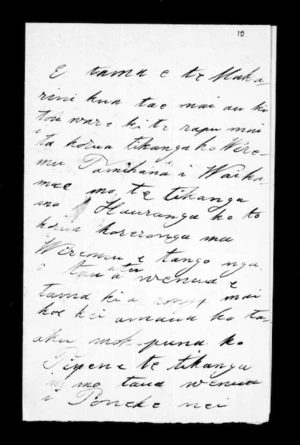 10
E tama e te Maka-
rini kua tae mai au ki
tou ware ki te rapu mai
i ta korua tikanga ko Wire-
mu Tamihana i Waihu-
mae mo te tikanga
mo Hauranga ko to
korua korerenga ma
Wiremu e tango nga
taua atu wenua e
tama kia rongo mai
koe kei amana ko ta-
aku mokopuna ko
Tipene te tikanga
mo taua wenua
i Poneke nei